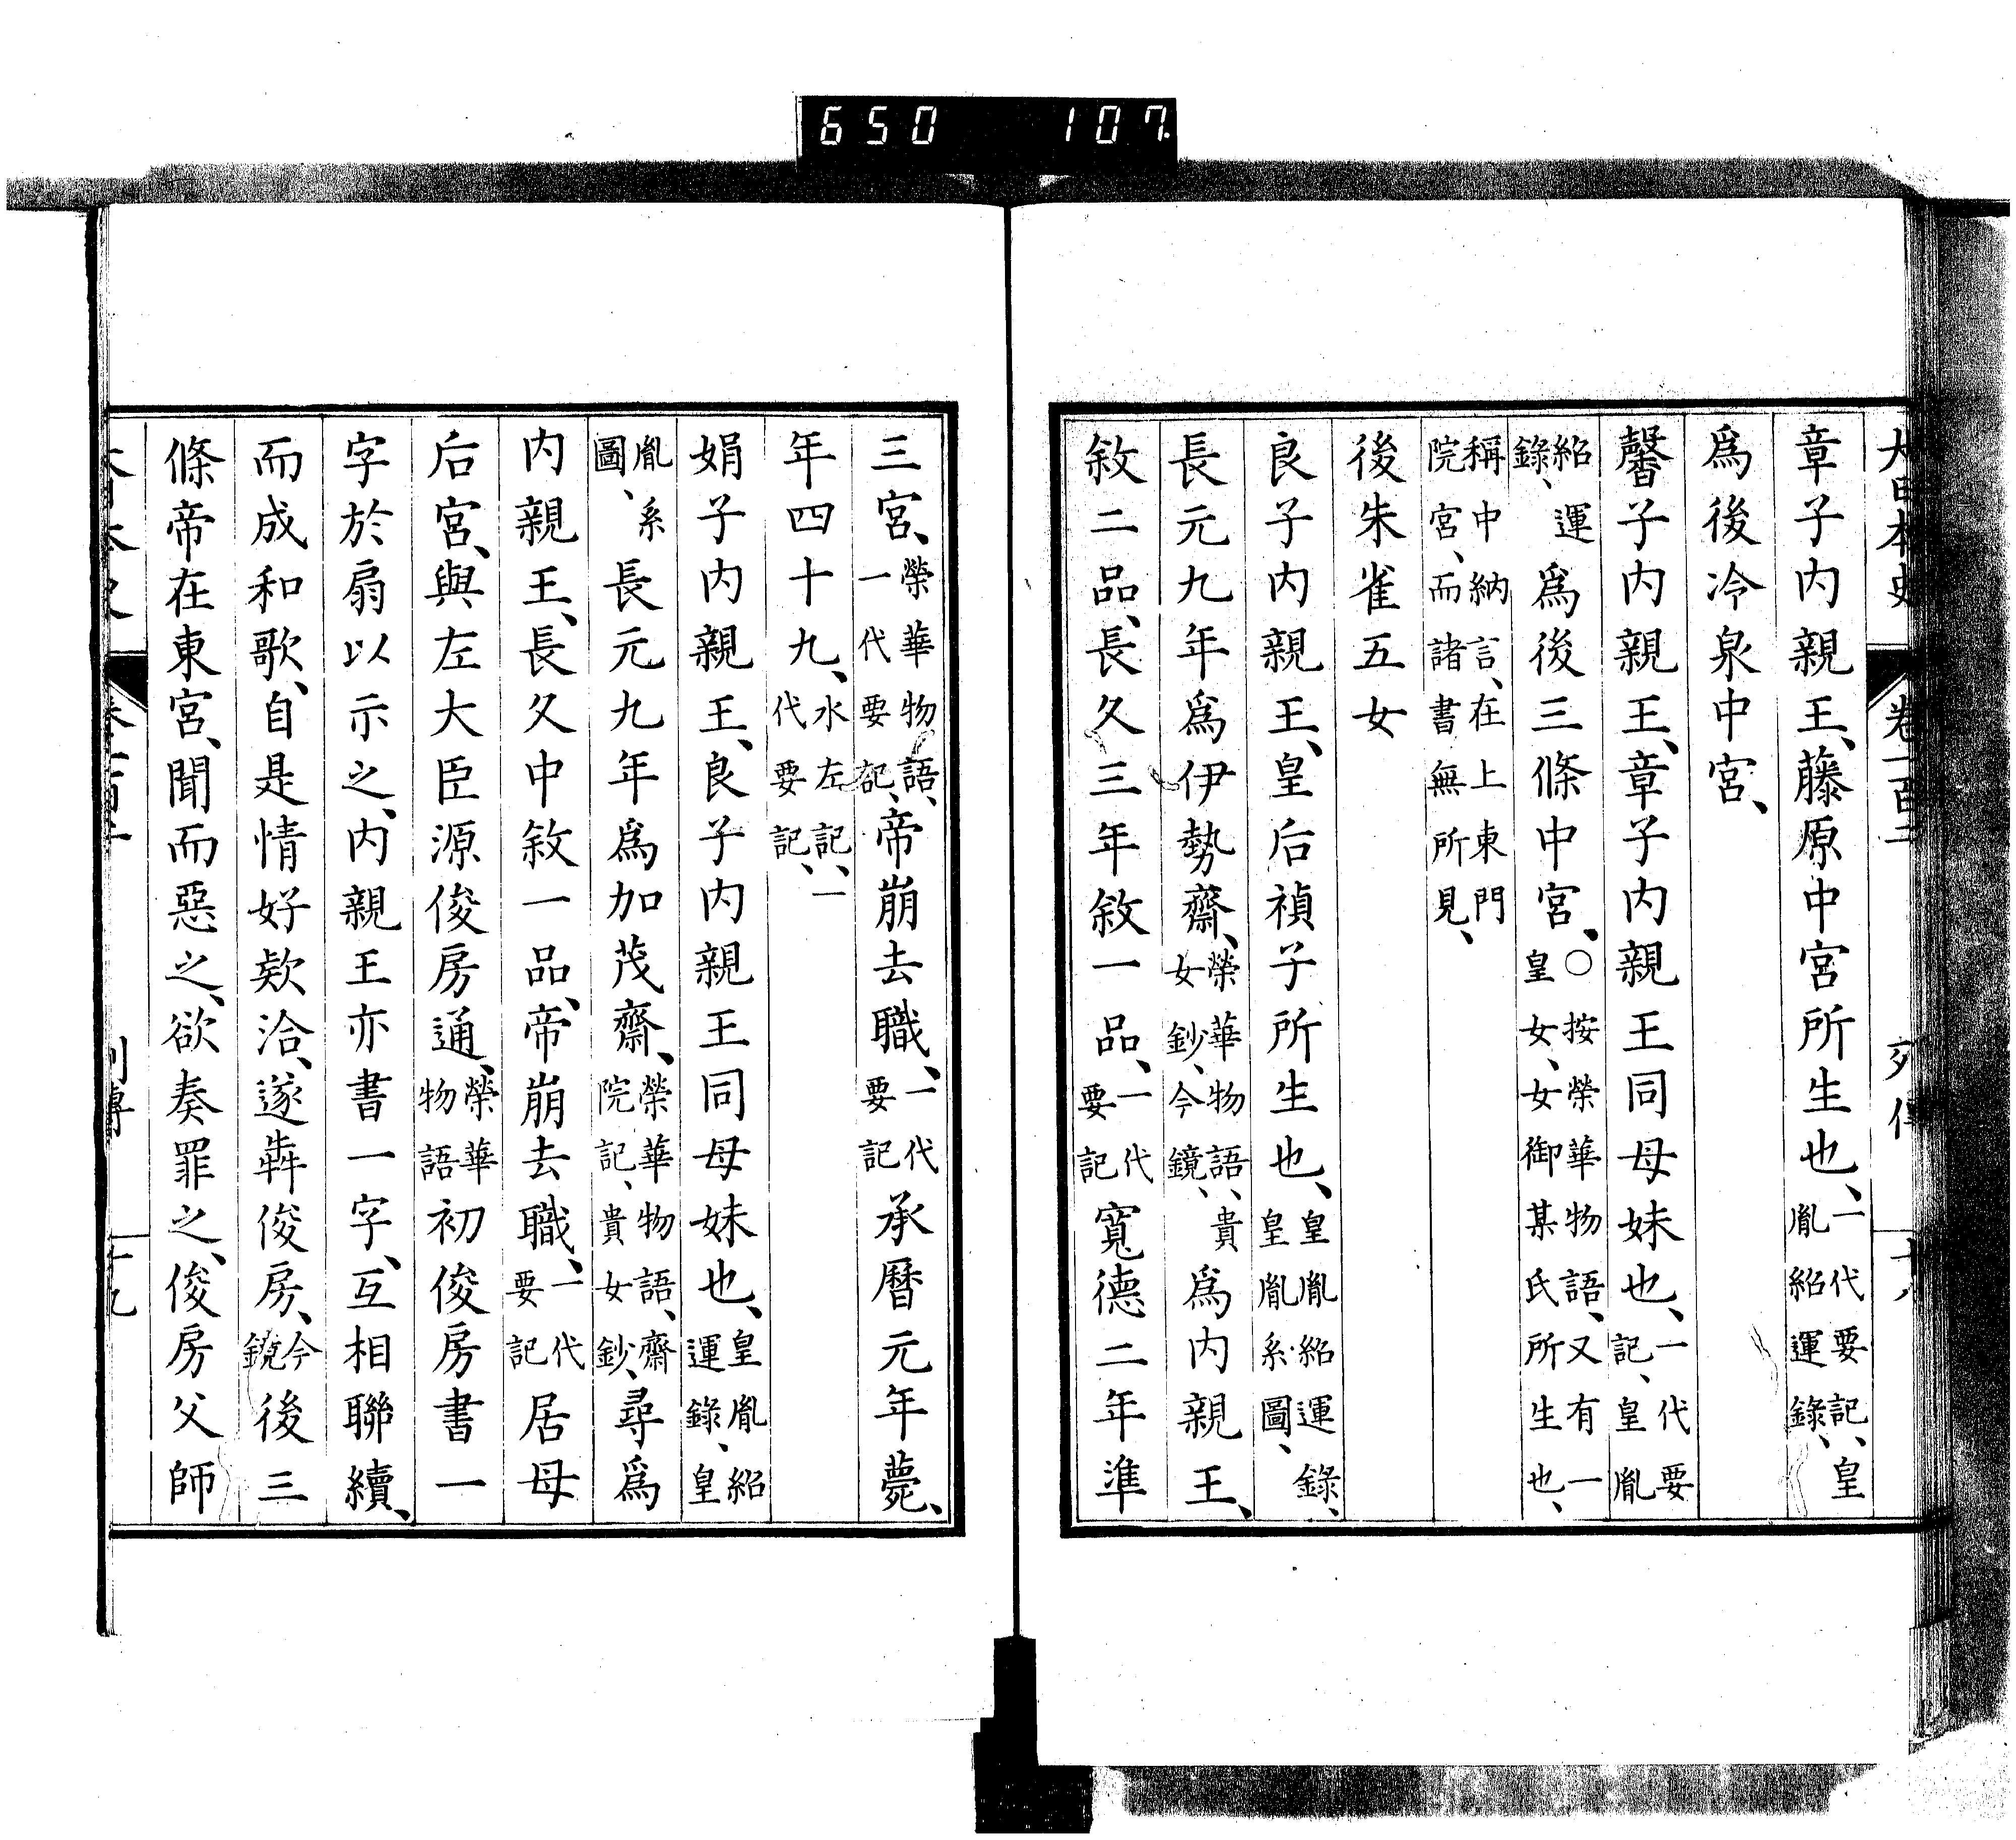 650 107
大日本史 卷一百二 列傳 十八
章子內親王、藤原中宮所生也、一代要記、皇胤紹運錄、
爲後冷泉中宮、
馨子內親王、章子內親王同母妹也、一代要記、皇胤
紹運錄、爲後三條中宮、○按榮華物語、又有一皇女、女御某氏所生也、
稱中納言、在上東門院宮、而諸書無所見、
後朱雀五女
良子內親王、皇后禎子所生也、皇胤紹運錄、皇胤系圖、
長元九年爲伊勢齋、榮華物語、貴女鈔、今鏡、爲內親王、
敘二品、長久三年敘一品、一代要記寬德二年準
三宮、榮華物語、一代要記、帝崩去職、一代要記承曆元年薨、
年四十九、水左記、一代要記、
娟子內親王、良子內親王同母妹也、皇胤紹運錄、皇
胤系圖、長元九年爲加茂齋、榮華物語、齋院記、貴女鈔、尋爲
內親王、長久中敘一品、帝崩去職、一代要記居母
后宮、與左大臣源俊房通、榮華物語初俊房書一
字於扇以示之、內親王亦書一字、互相聯續、
而成和歌、自是情好欵洽、遂犇俊房、今鏡後三
條帝在東宮、聞而惡之、欲奏罪之、俊房父師
列傳 十九